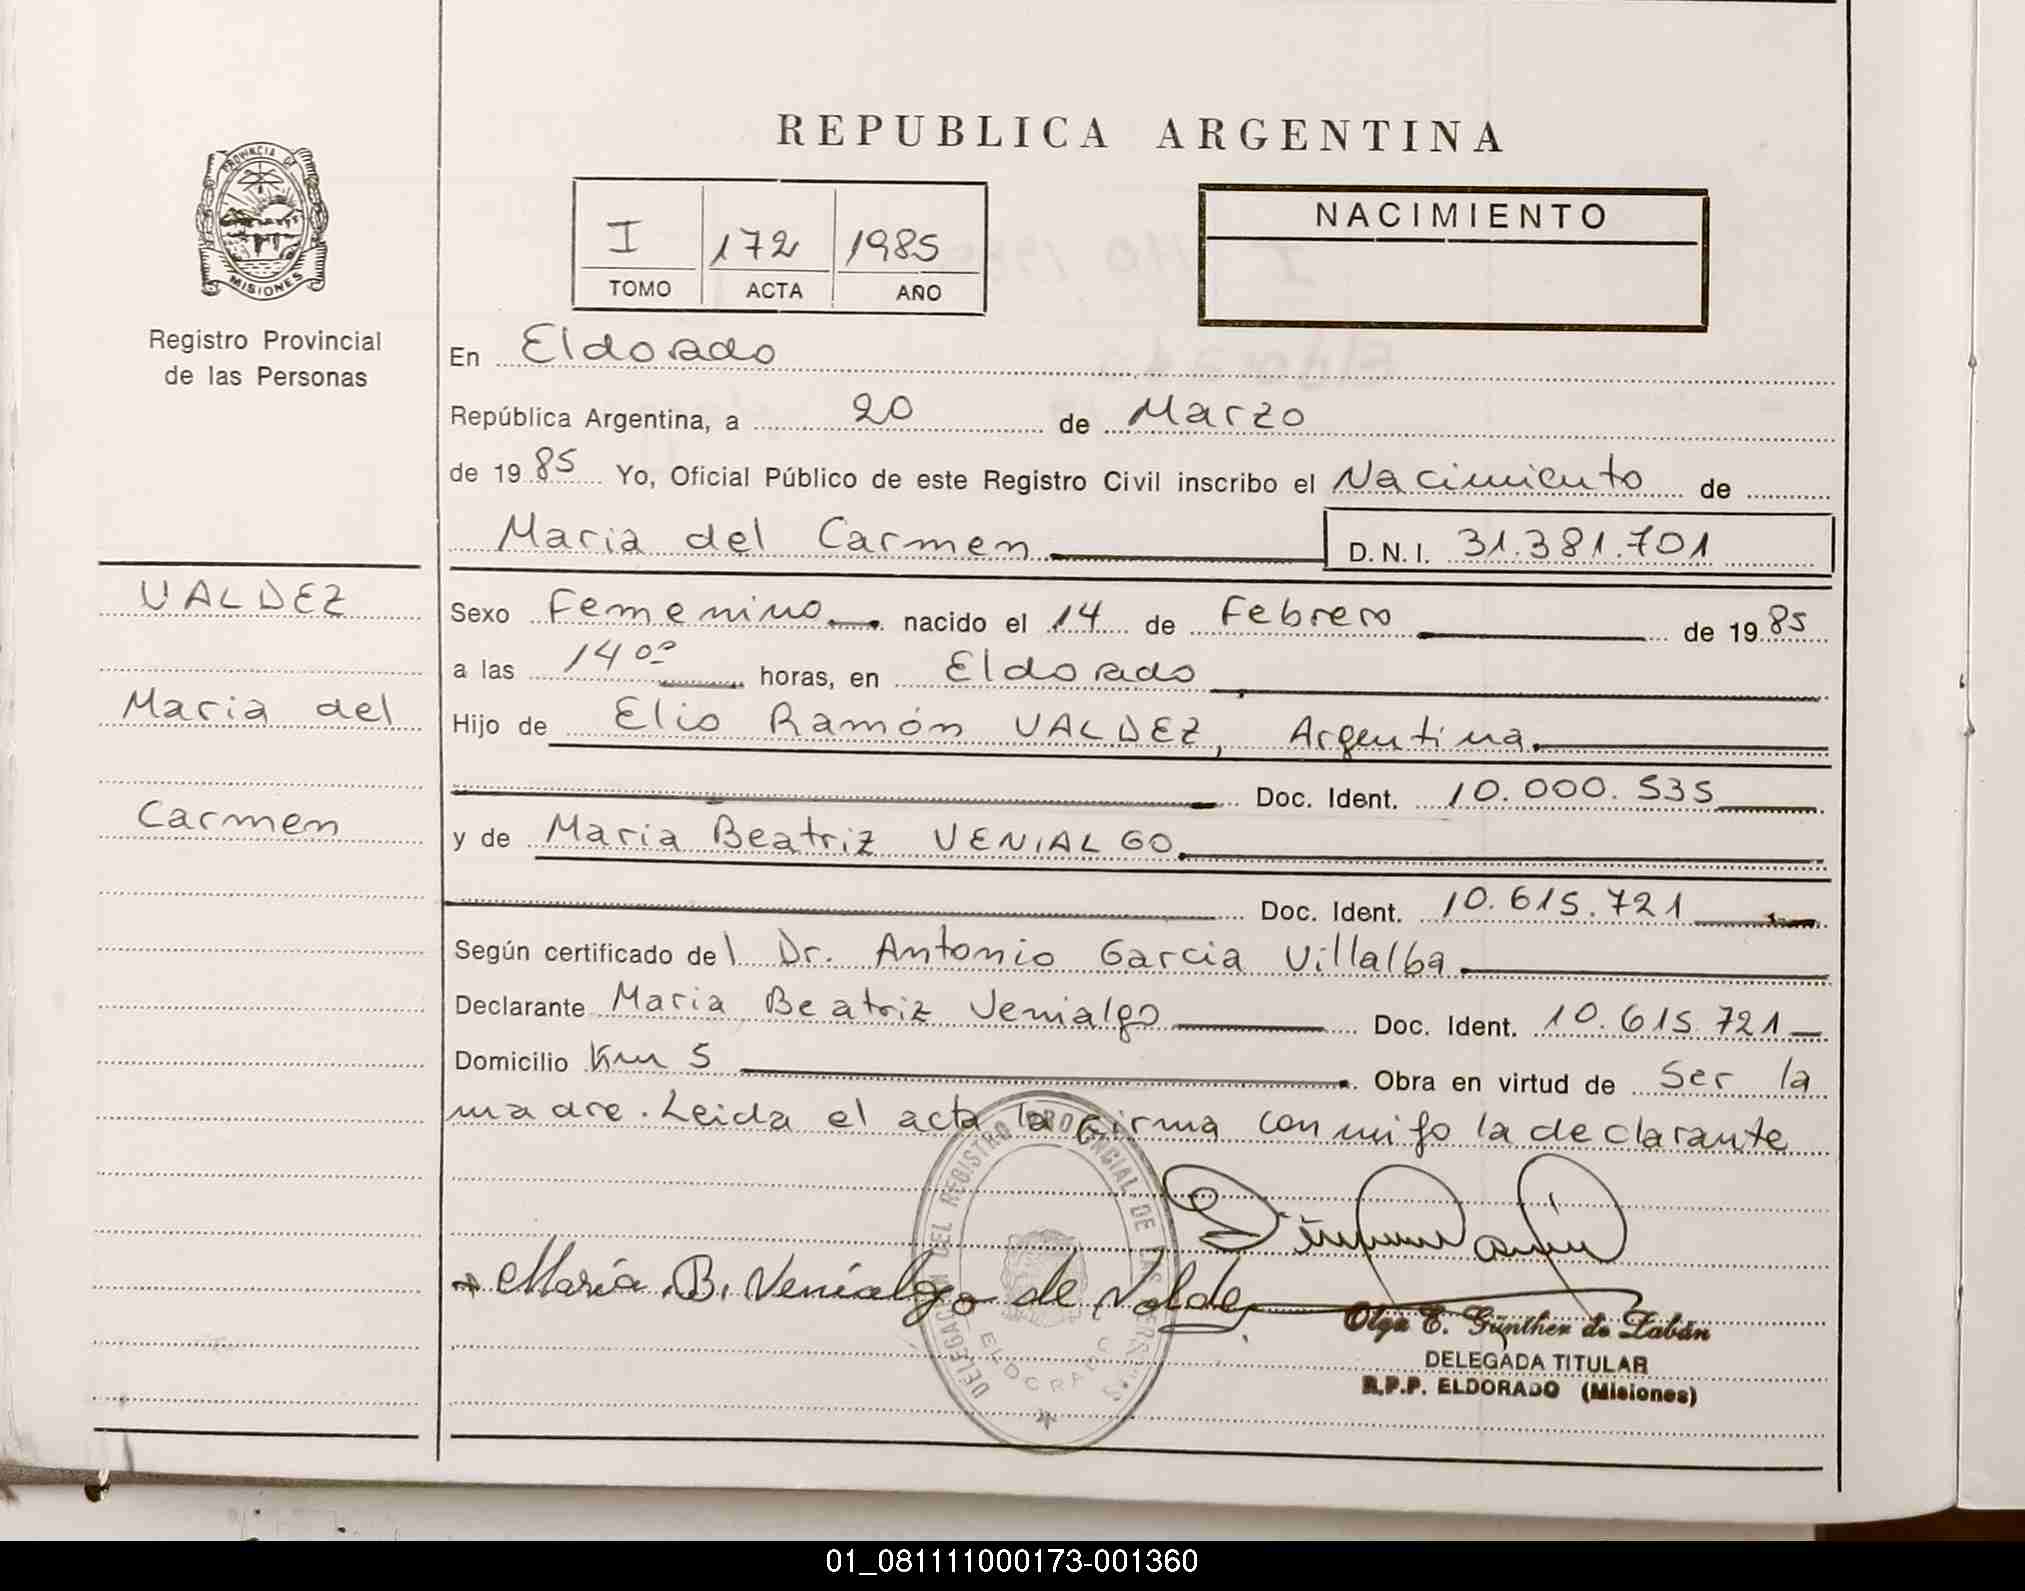 REPUBLICA ARGENTINA
PROVINCIA DE
MISIONES
Registro Provincial
de las Personas
I 172 1985
TOMO ACTA AÑO
NACIMIENTO
En Eldorado
República Argentina, a 20 de Marzo
de 1985 Yo, Oficial Público de este Registro Civil inscribo el Nacimiento de
Maria del Carmen D.N.I. 31.381.701
VALDEZ
Maria del
Carmen
Sexo Femenino nacido el 14 de Febrero de 1985
a las 14 00 horas, en Eldorado
Hijo de Elio Ramón VALDEZ, Argentina
Doc. Ident. 10.000.535
y de Maria Beatriz VENIALGO
Doc. Ident. 10.615.721
Según certificado del Dr. Antonio Garcia Villalba
Declarante Maria Beatriz Venialgo Doc. Ident. 10.615.721
Domicilio Km 5 Obra en virtud de Ser la
madre. Leida el acta la firma conmigo la declarante
DEL REGISTRO PROVINCIAL DE LAS
ELDORADO
María B. Venialgo de Valdez
Olga E. Günther de Zabán
DELEGADA TITULAR
R.P.P. ELDORADO (Misiones)
01_081111000173-001360